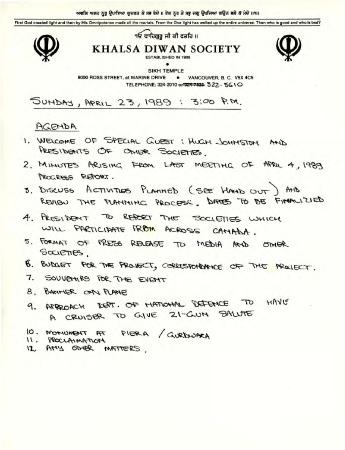 First God created light and then by His Omnipotence made all the mortals. From the One light has welled up the entire universe. Then who is good and who is bad?
KHALSA DIWAN SOCIETY
ESTABLISHED IN 1906
SIKH TEMPLE
8000 ROSS STREET, at MARINE DRIVE • VANCOUVER, B.C. V5X 4C5
TELEPHONE: 324-2010 322-5610
SUNDAY, APRIL 23, 1989 : 3:00 P.M.
AGENDA
1. WELCOME OF SPECIAL GUEST : HUGH JOHNSTON AND
PRESIDENTS OF OTHER SOCIETIES.
2. MINUTES ARISING FROM LAST MEETING OF APRIL 4, 1989
PROGRESS REPORT.
3. DISCUSS ACTIVITIES PLANNED (SEE HAND OUT) AND
REVIEW THE PLANNING PROCESS. DATES TO BE FINALIZED
4. PRESIDENT TO REPORT THE SOCIETIES WHICH
WILL PARTICIPATE FROM ACROSS CANADA.
5. FORMAT OF PRESS RELEASE TO MEDIA AND OTHER
SOCIETIES.
6. BUDGET FOR THE PROJECT, CORRESPONDANCE OF THE PROJECT.
7. SOUVENIRS FOR THE EVENT
8. BANNER ON PLANE
9. APPROACH DEPT. OF NATIONAL DEFENCE TO HAVE
A CRUISER TO GIVE 21-GUN SALUTE
10. MONUMENT AT PIERA / GURDWARA
11. PROCLAMATION
12. ANY OTHER MATTERS.